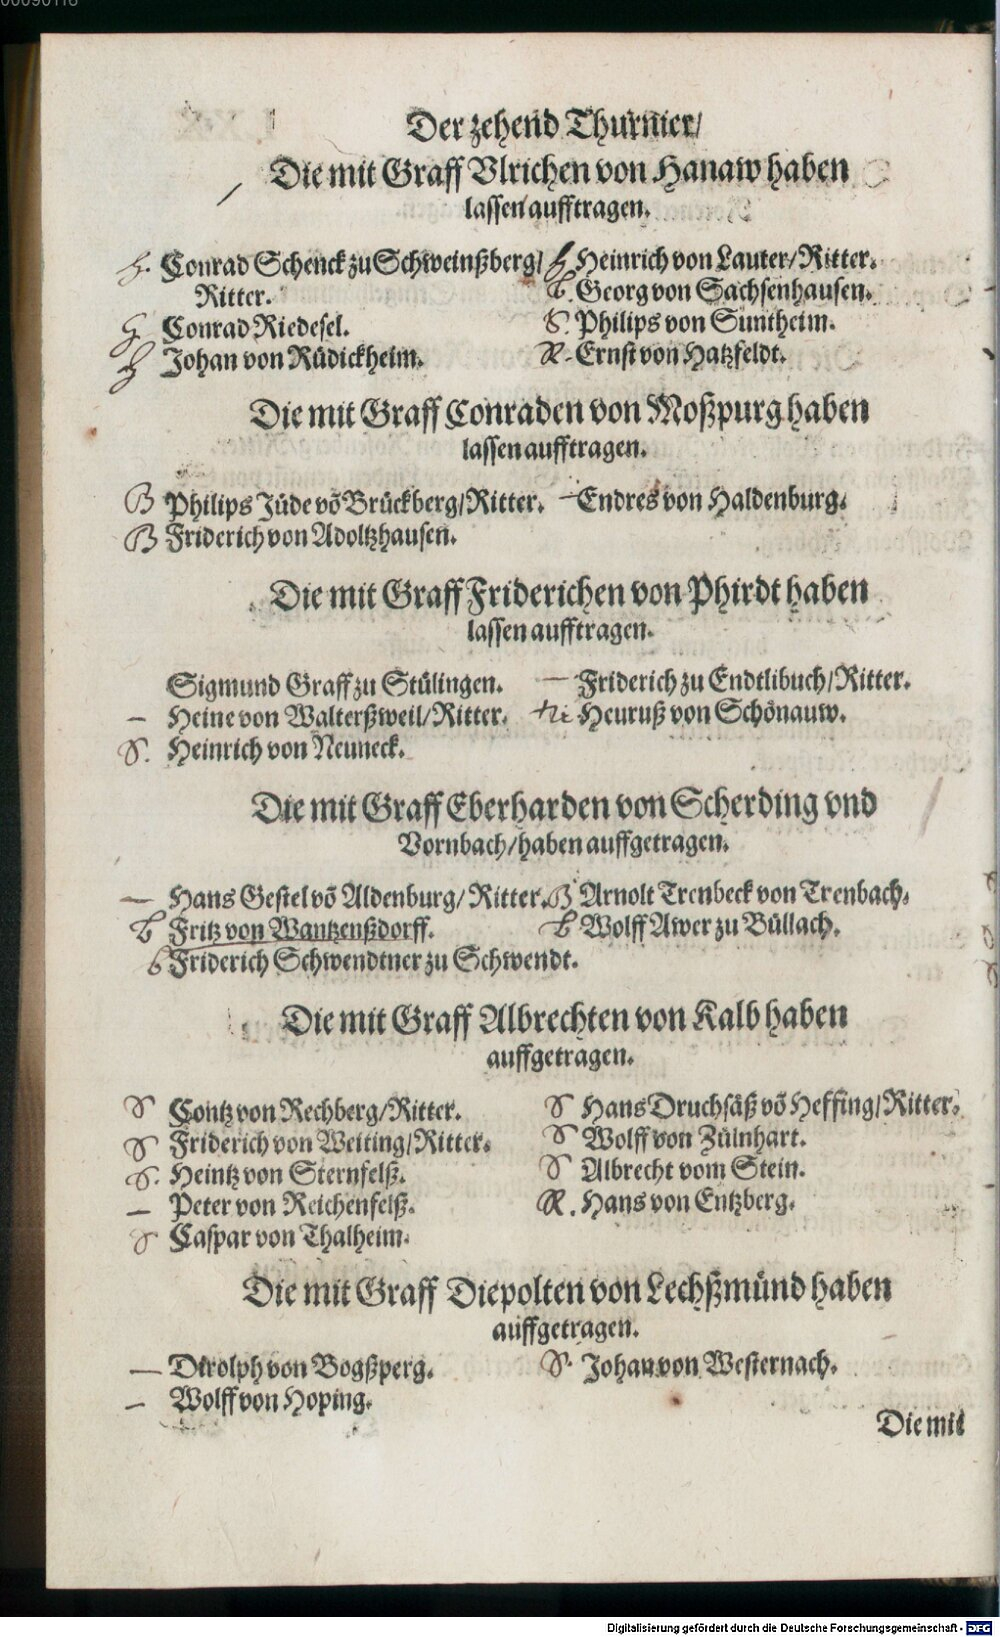 Der zehend Thurnier/
Die mit Graff Vlrichen von Hanaw haben
lassen aufftragen.
H. Conrad Schenck zu Schweinßberg/
Ritter.
Conrad Riedesel.
Johan von Rüdickheim.
Heinrich von Lauter/Ritter.
Georg von Sachsenhausen.
S. Philips von Suntheim.
R. Ernst von Hatzfeldt.
Die mit Graff Conraden von Moßpurg haben
lassen aufftragen.
B Philips Jüde võ Brückberg/Ritter.
B Friderich von Adoltzhausen.
— Endres von Haldenburg.
Die mit Graff Friderichen von Phirdt haben
lassen aufftragen.
Sigmund Graff zu Stülingen.
— Heine von Walterßweil/Ritter.
S. Heinrich von Neuneck.
— Friderich zu Endtlibuch/Ritter.
Heuruß von Schönauw.
Die mit Graff Eberharden von Scherding vnd
Vornbach/haben auffgetragen.
— Hans Gestel võ Aldenburg/Ritter.
b Fritz von Wantzenßdorff.
b Friderich Schwendtner zu Schwendt.
B Arnolt Trenbeck von Trenbach.
b Wolff Awer zu Büllach.
Die mit Graff Albrechten von Kalb haben
auffgetragen.
S Contz von Rechberg/Ritter.
S Friderich von Weiting/Ritter.
S. Heintz von Sternfelß.
— Peter von Reichenfelß.
S Caspar von Thalheim.
S Hans Druchsäß võ Heffing/Ritter.
S Wolff von Zülnhart.
S Albrecht vom Stein.
R. Hans von Entzberg.
Die mit Graff Diepolten von Lechßmünd haben
auffgetragen.
— Dirolph von Bogßperg.
— Wolff von Hoping.
S. Johan von Westernach.
Die mit
Digitalisierung gefördert durch die Deutsche Forschungsgemeinschaft - DFG